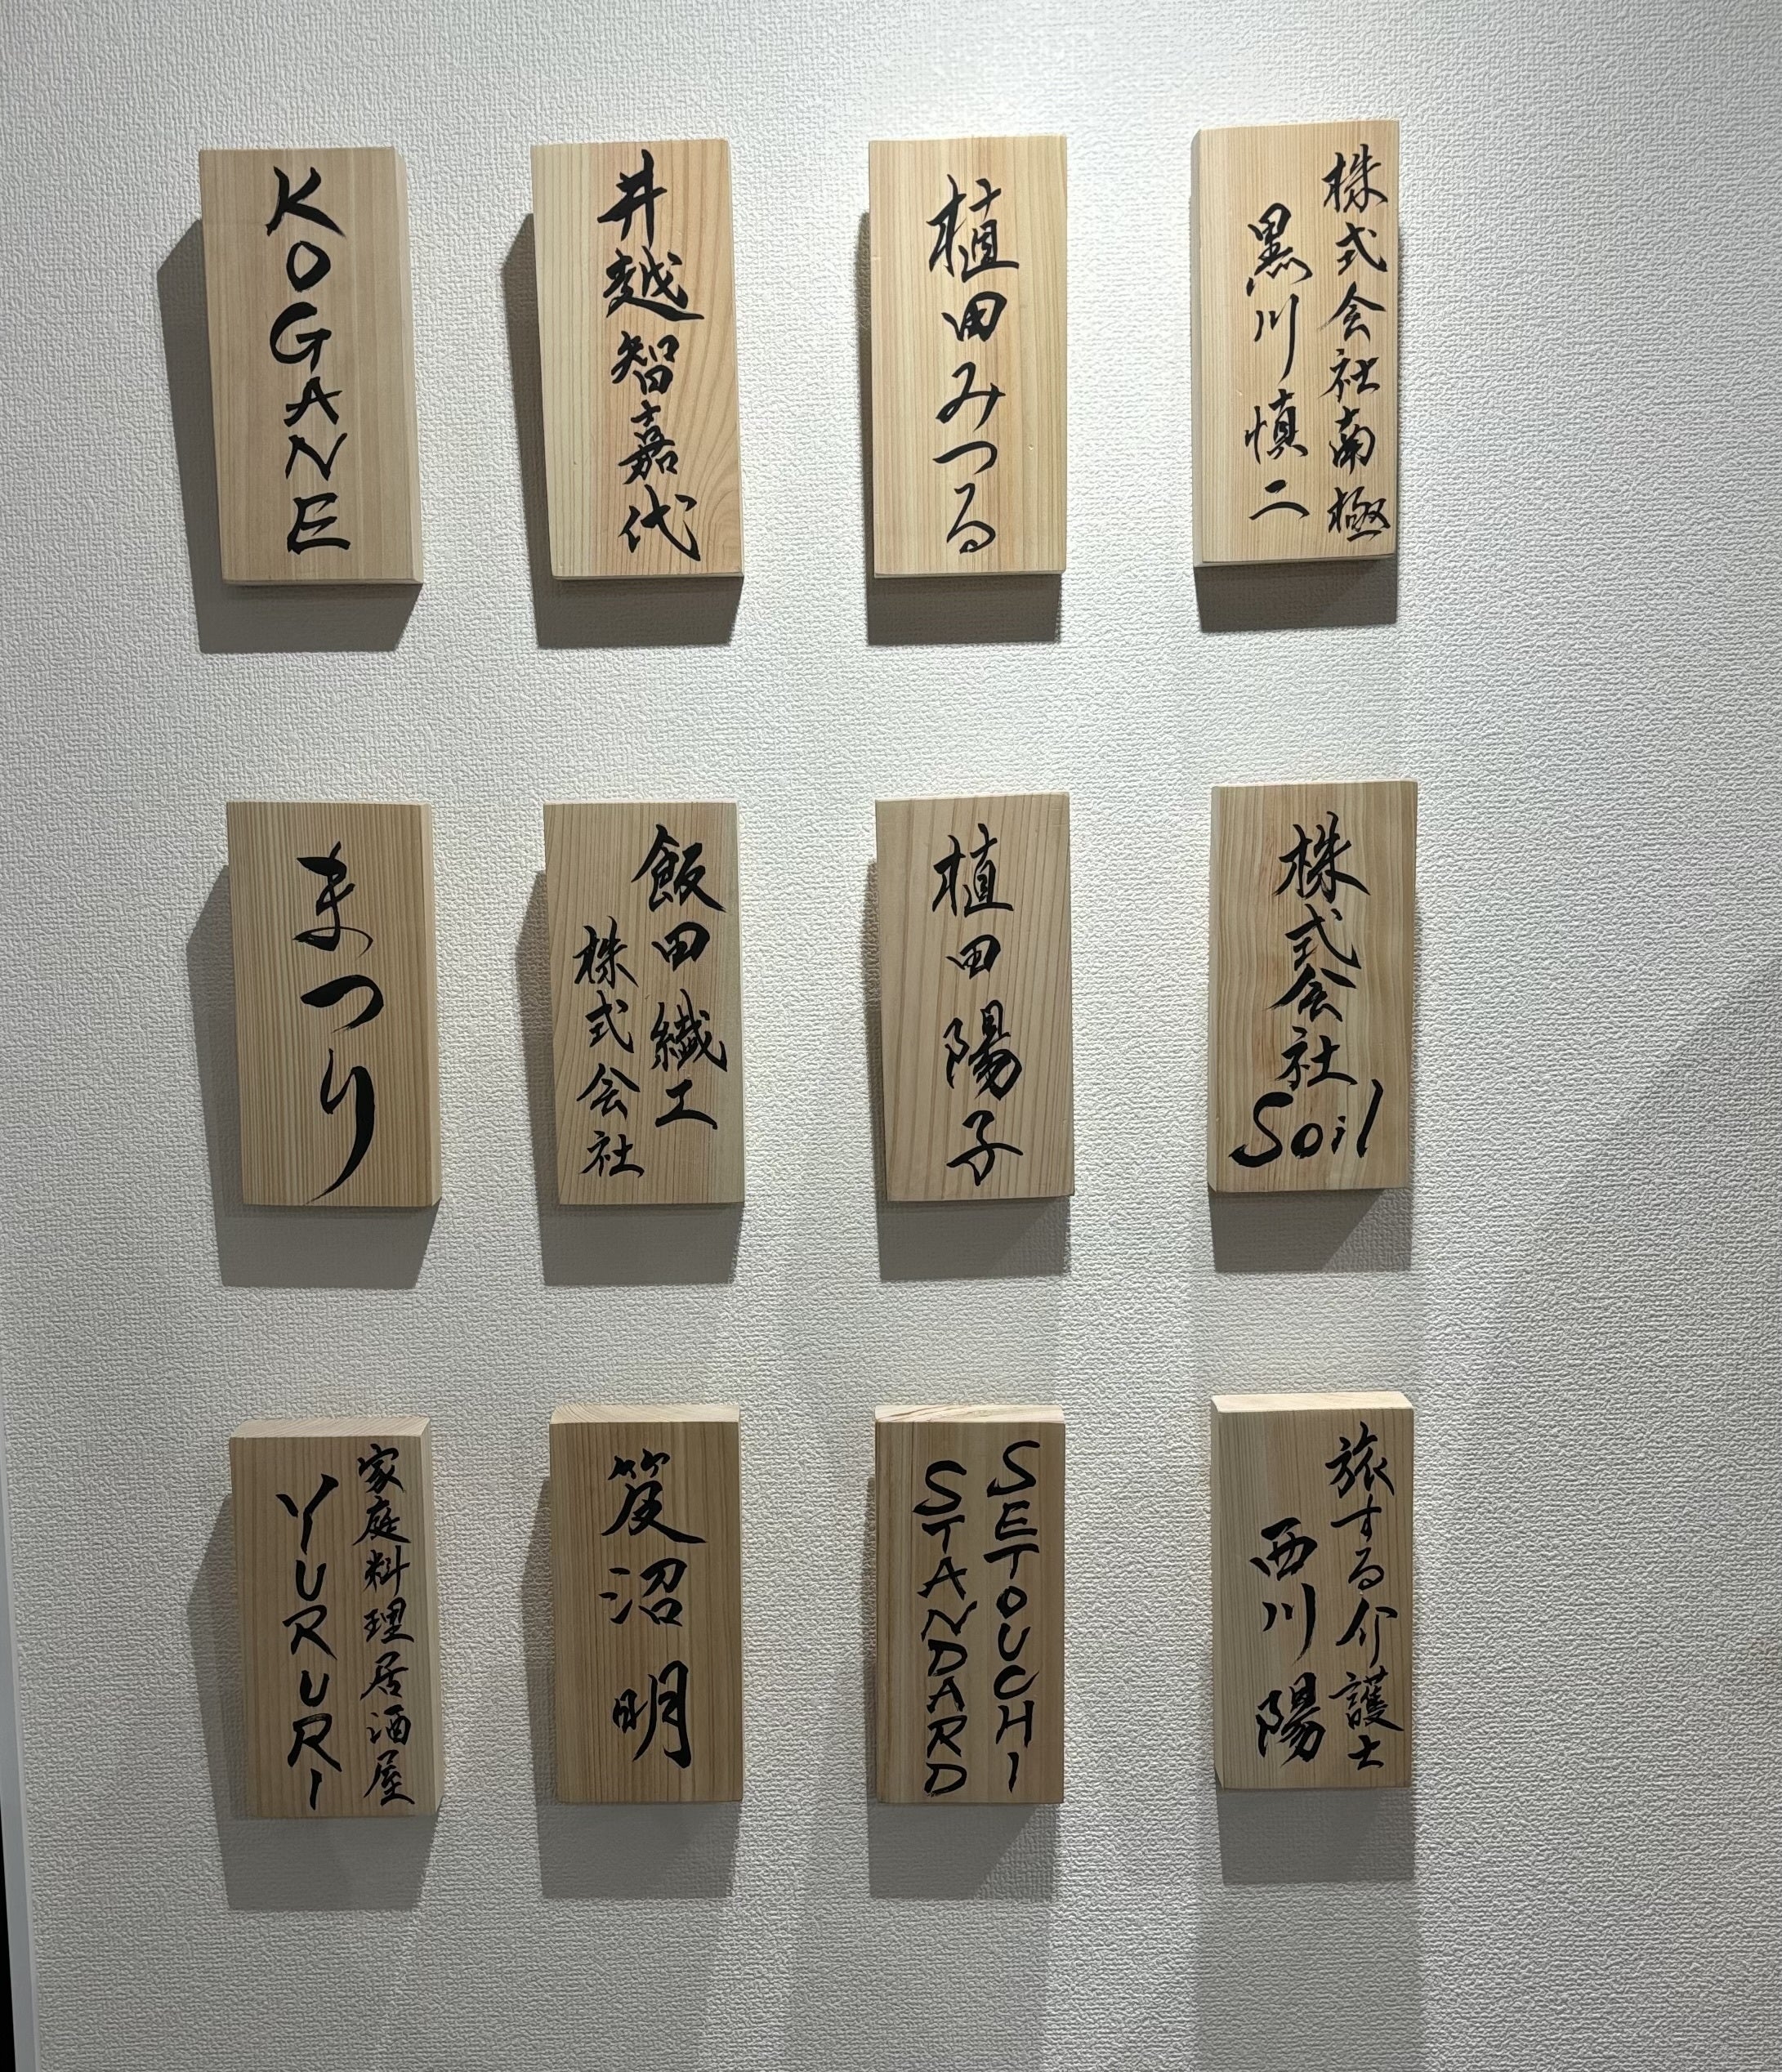 KOGANE
井越智嘉代
植田みつる
株式会社南極
黒川慎二
まつり
飯田繊工
株式会社
植田陽子
株式会社
Soil
家庭料理居酒屋
YURURI
笈沼明
SETOUCHI
STANDARD
旅する介護士
西川陽